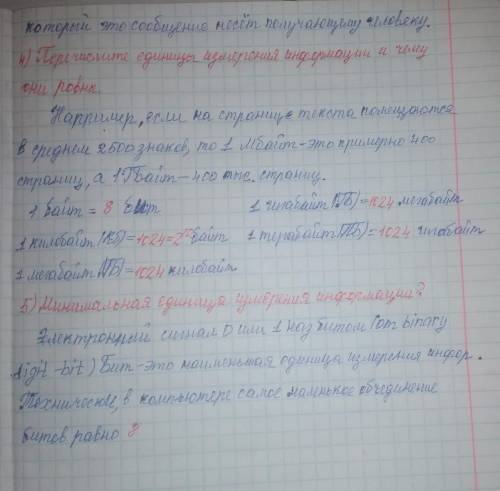 который это сообщение несёт получающему человеку.
4) Перечислите единицы измерения информации и чему
они равны.
Например, если на странице текста помещаются
в среднем 2500 знаков, то 1 Мбайт-это примерно 400
страниц, а 1 Гбайт-400 тыс. страниц.
1 байт = 8 бит 1 гигабайт (ГБ)=1024 мегабайт
1 килобайт (КБ)=1024=2¹⁰байт 1 терабайт (ТБ)=1024 гигабайт
1 мегабайт (МБ)=1024 килобайт
5) Минимальная единица измерения информации?
Электронный сигнал 0 или 1 наз битом (от binary
digit-bit) Бит-это наименьшая единица измерения инфор.
в компьютере самое маленькое объединение
битов равно 8